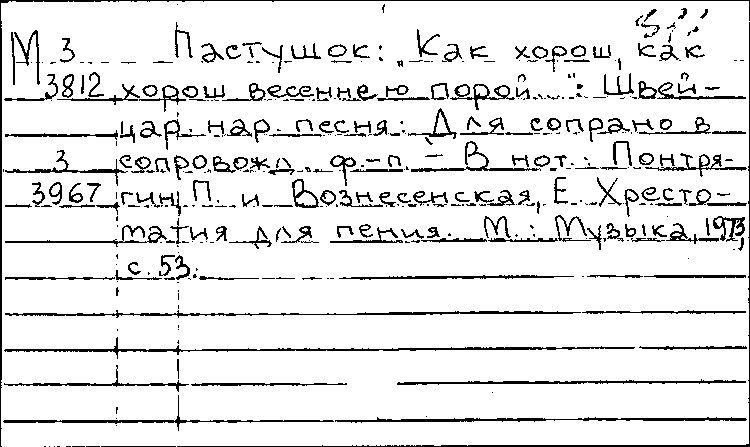 М 3 Пастушок: „Как хорош, как
3812 хорош весеннею порой...": Швей-
цар. нар. песня: Для сопрано в
3 сопровожд. ф.-п. - В нот.: Понтря-
3967 гин, П. и Вознесенская, Е. Хресто-
матия для пения. М.: Музыка, 1973,
с. 53.